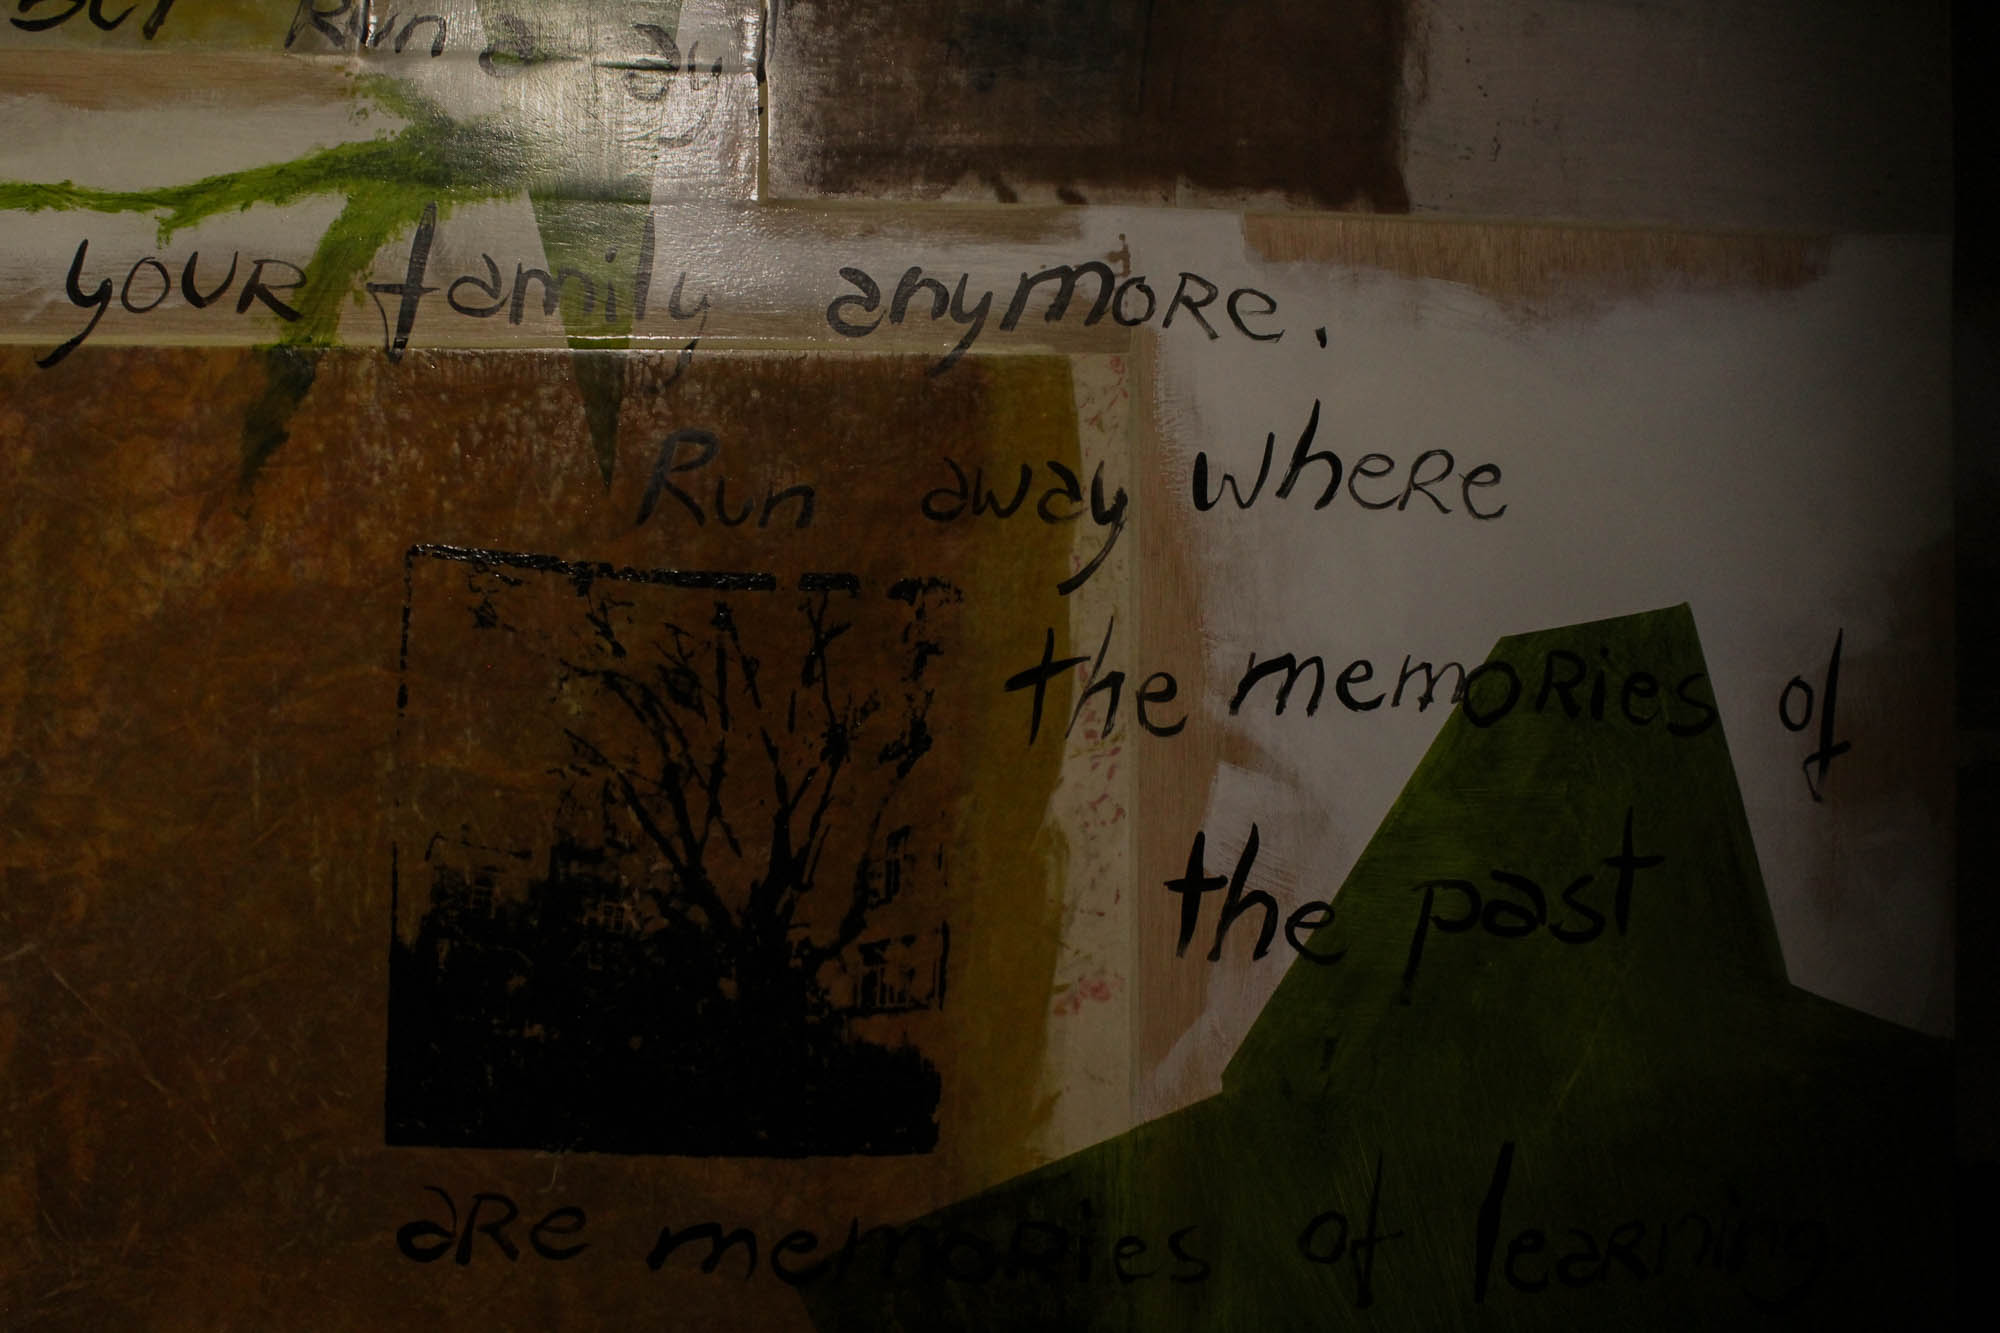 But Run away
your family anymore.
Run away where
the memories of
the past
are memories of learning